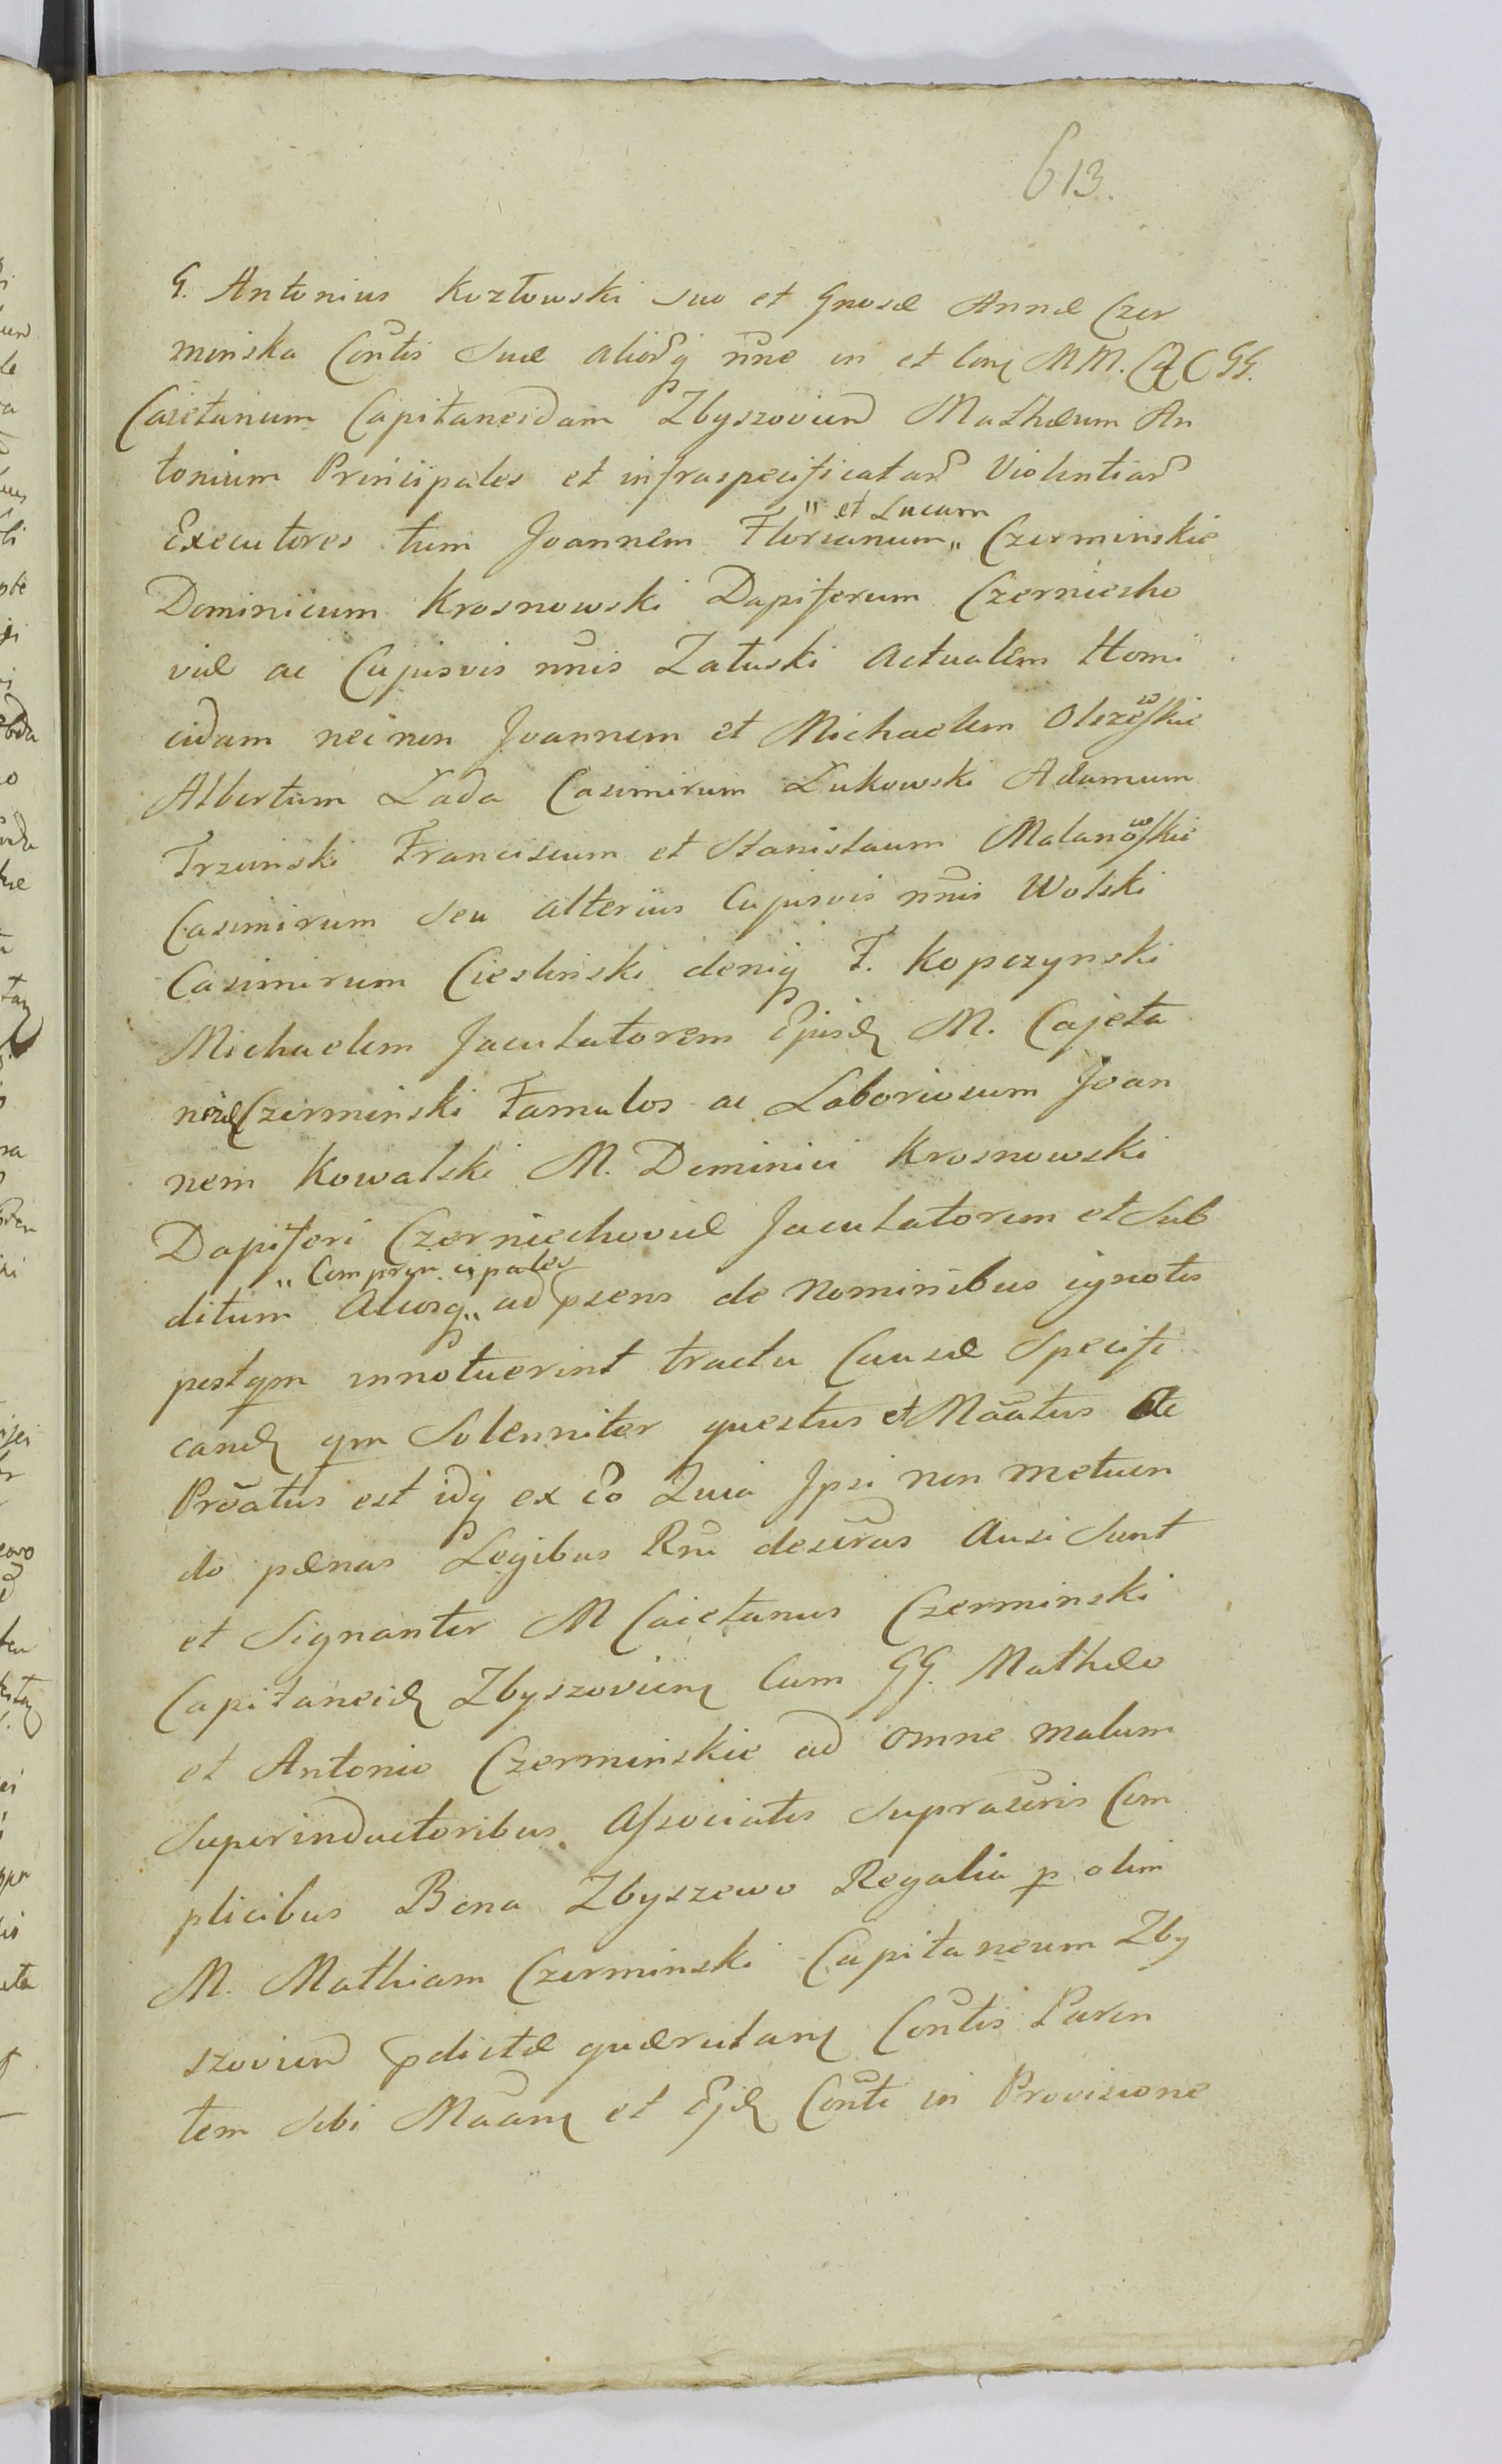 613.
G. Antonius Kozłowski suo et Gnosæ Annæ Czer
minska Con̄tis suæ alior̄q nn̄e in et con MM. GG.
Caietanum Capitaneidam Zbyszovien Mathæum An
tonium Principales et infraspecificatar Violentiar
" et Lucam
Executores tum Joannem Florianum „ Czerminskie
Dominicum Krosnowski Dapiferum Czerniecho
viæ ac Cujusvis nn̄is Załuski actualem Homi
cidam nec non Joannem et Michaelem Olszewskie
Albertum Łada Casimirum Łukowski Adamum
Trzcinski Franciscum et Stanislaum Malanowskie
Casimirum seu alterius Cujusvis nn̄is Wolski
Casimirum Cieslinski deniq F. Kopczynski
Michaelem Jaculatorem Ejusd M. Cajeta
ni Czerminski Famulos ac Laboriosum Joan
nem Kowalski M. Dominici Krosnowski
Dapiferi Czerniechoviæ Jaculatorem et Sub
" Comprincipales
ditum aliosq „ ad psens de Nominibus ignotis
postqm innotuerint tractu Causæ Specifi
cand qm Solenniter questus et Man̄tus ac
Prōatus est idq ex eo Quia Ipsi non metuen
do pænas Legibus Rn̄i descrās ausi sunt
et Signanter M Caietanus Czerminski
Capitaneid Zbyszovien Cum GG. Mathæo
et Antonio Czerminskie ad omne malum
Superinductoribus associatis suprascris Com
plicibus Bona Zbyszewo Regalia p olim
M. Mathiam Czerminski Capitaneum Zby
szovien pdictæ quærulan Con̄tis Paren
tem sibi Maan et Ejd Con̄ti in Provisione